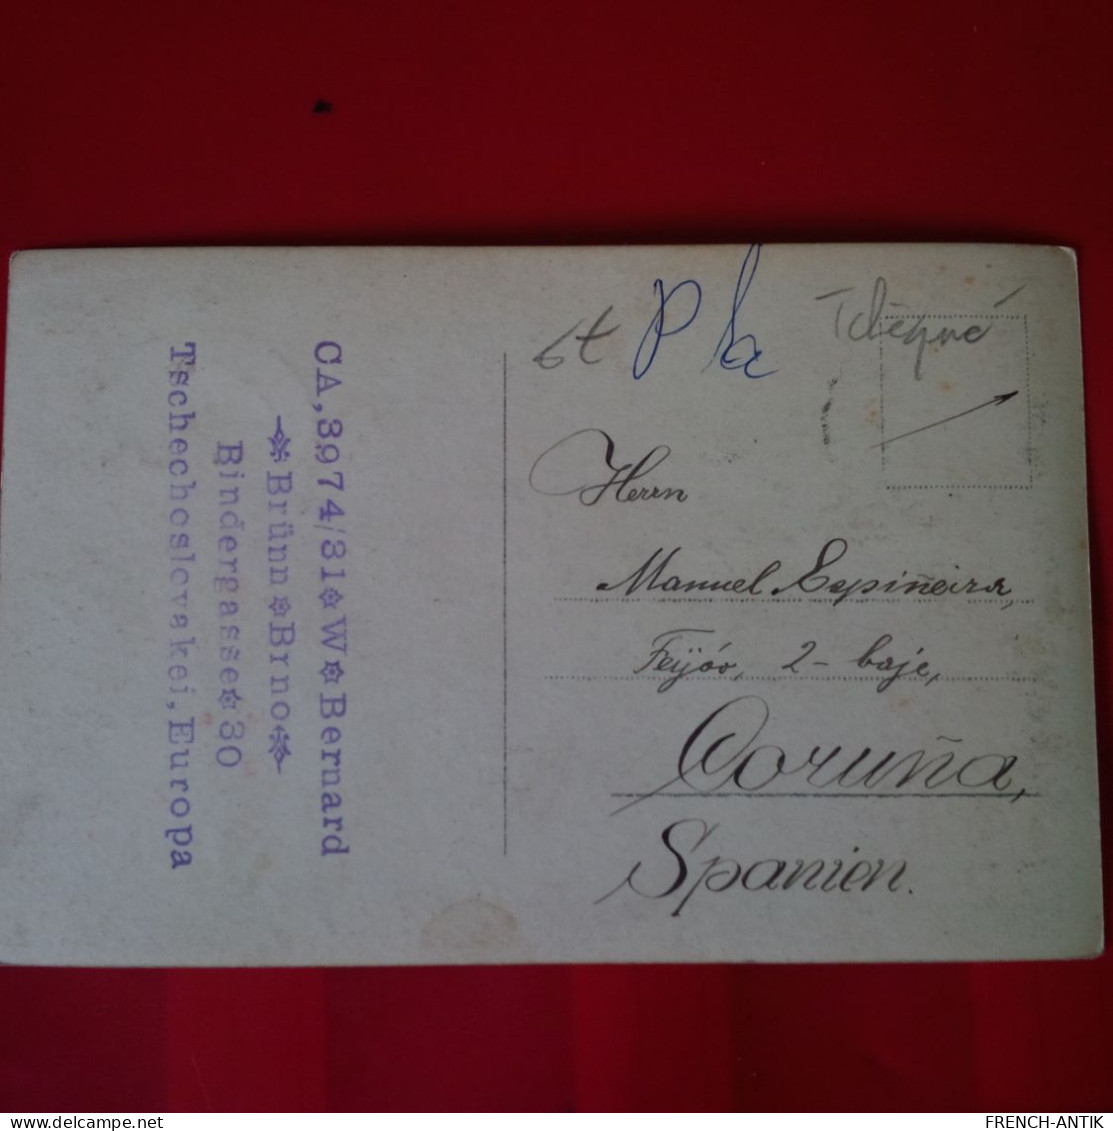 CA,3974/31 W Bernard
Brünn Brno
Bindergasse 30
Tschechoslovakei, Europa
6t
P
Tchèque
Herrn
Manuel Espiñeira,
Feijóo, 2 - baje,
Coruña,
Spanien.
FRENCH-ANTIK